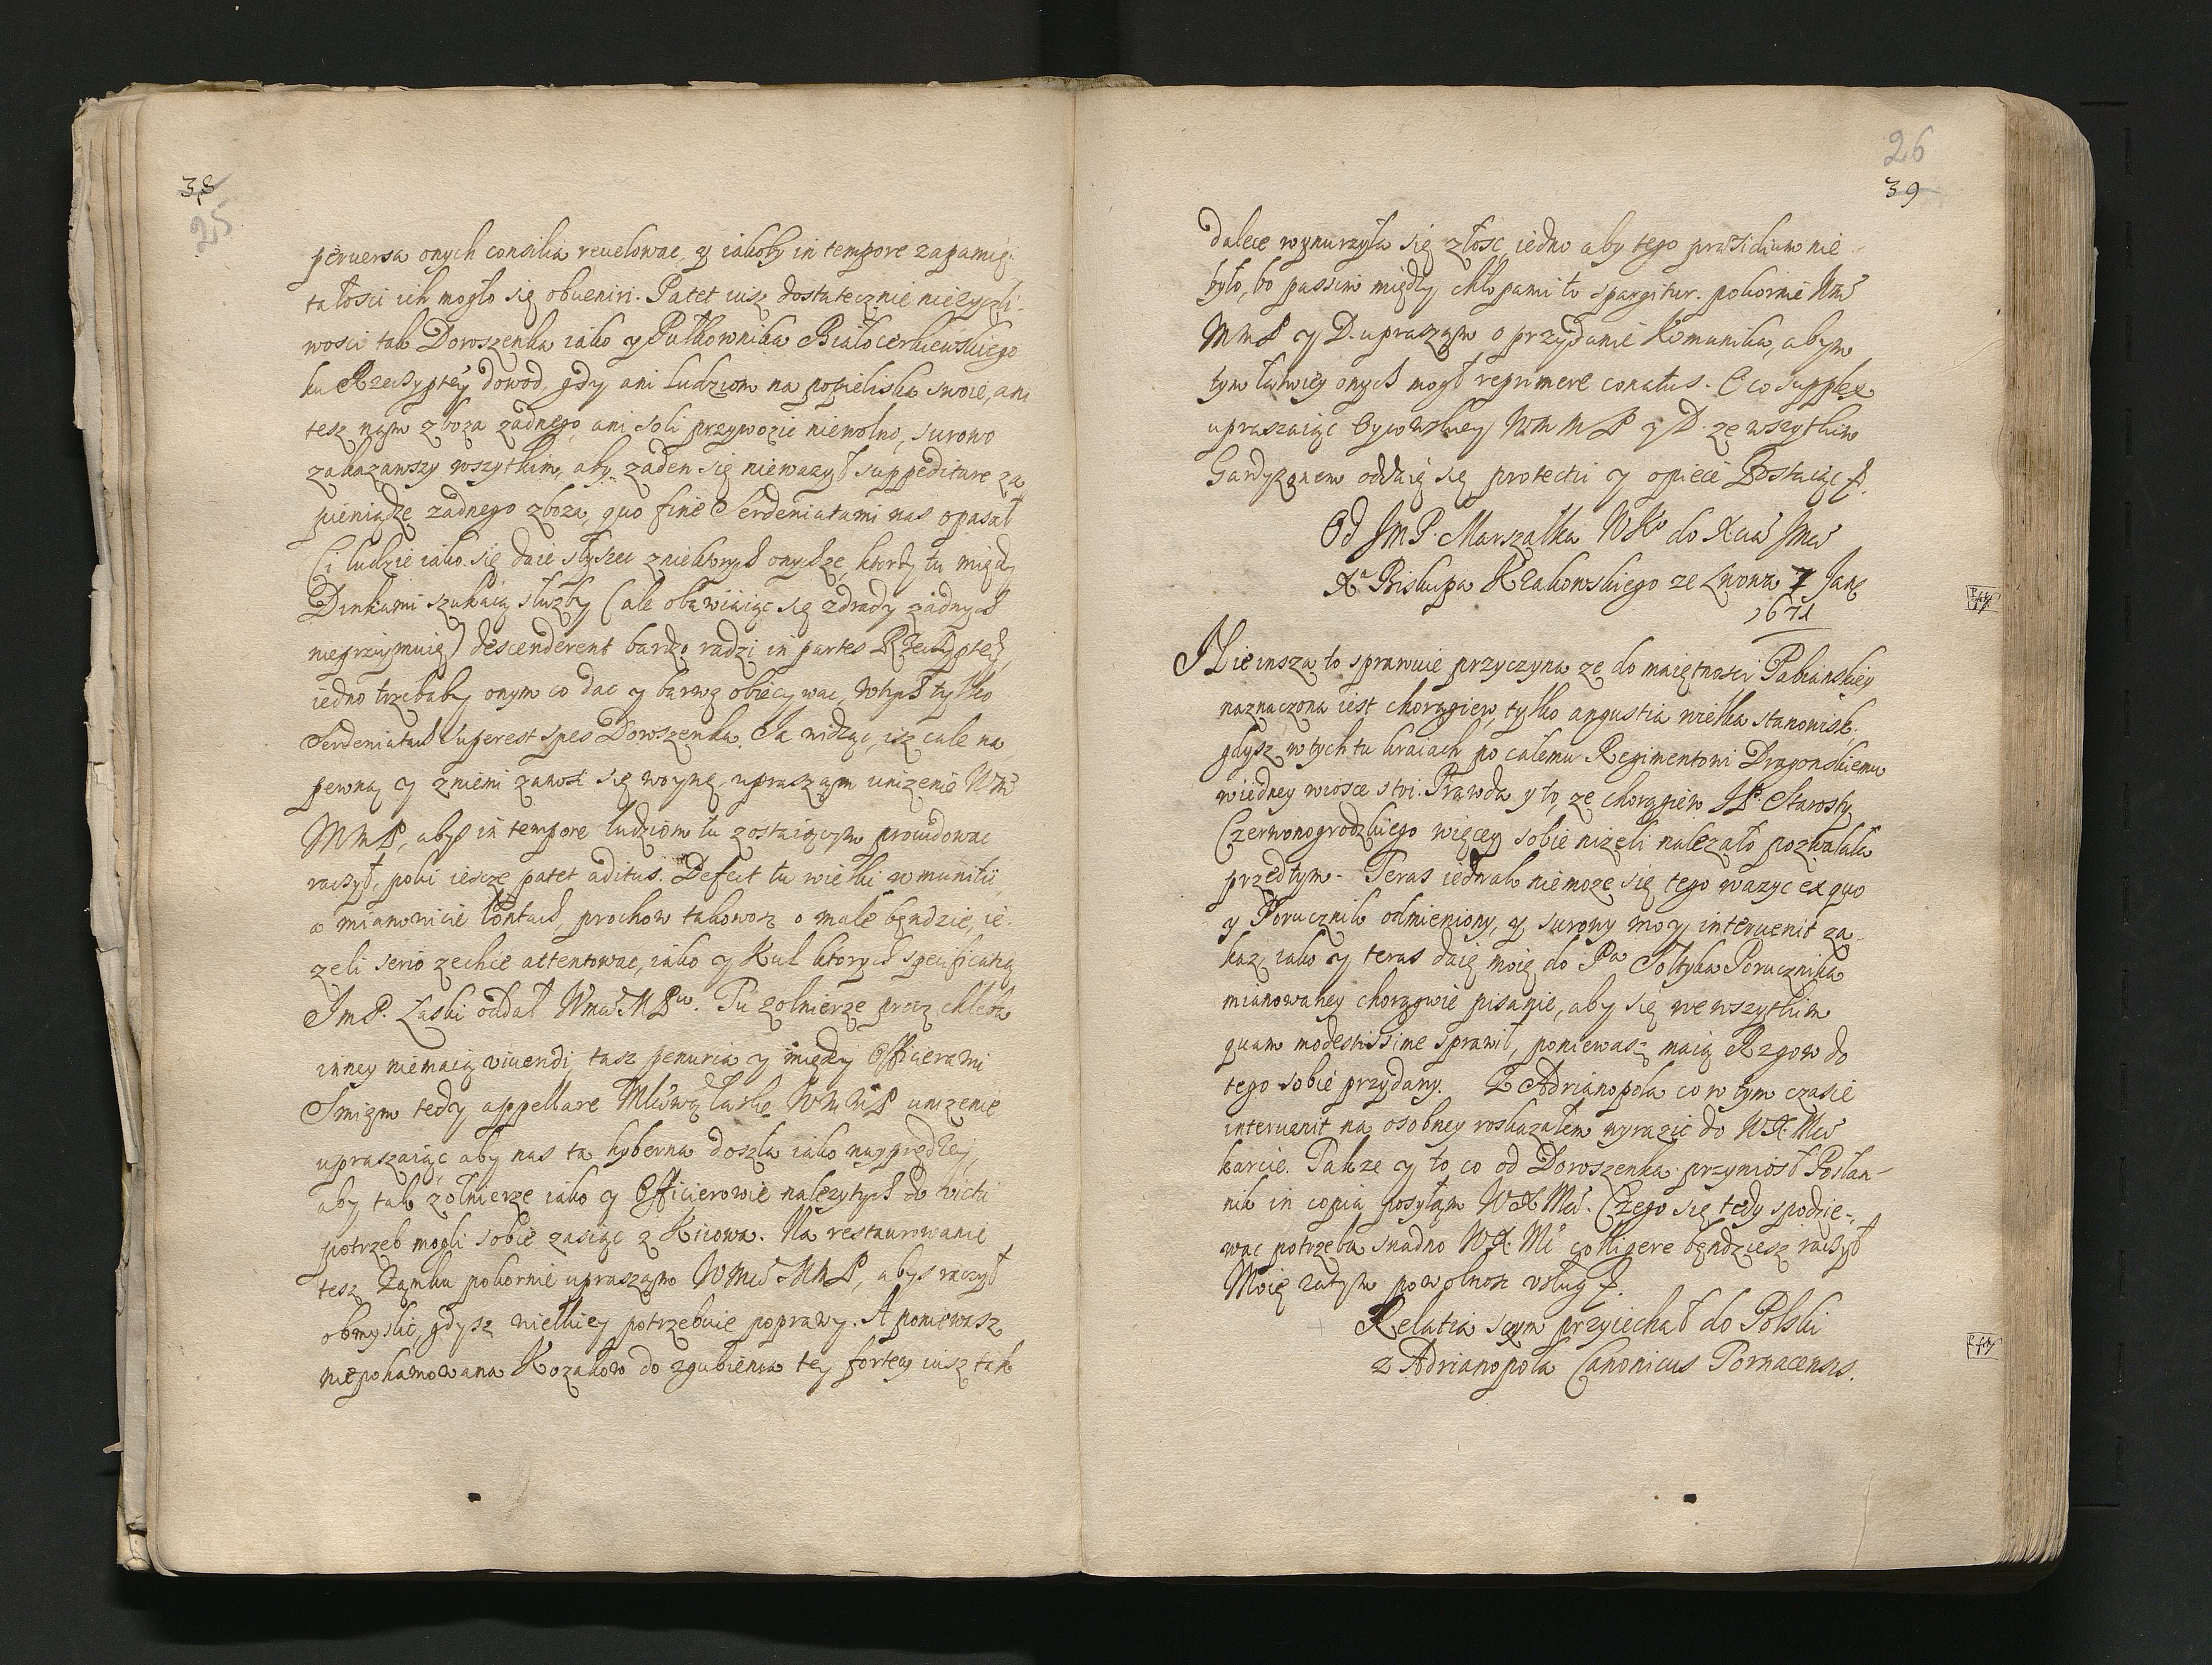 38
25
peruersa onych consilia reuelowac, y iakoby in tempore zapamię-
tałosci ich mogło się obueniri. Patet iusz dostatecznie nieżyczli-
wosci tak Doroszenka iako y Pułkownika Białocerkiewskiego
ku Rzeczyptey dowod, gdy ani ludziom na popieliska swoie, ani
tesz nam zboza zadnego ani soli przywozic niewolno, surowo
zakazawszy wszytkim, aby zaden się niewazył suppeditare za
pieniądze zadnego zboza, quo fine Serdeniatami nas opasał
Ci ludzie iako się daie słyszec z niektorych onychze, ktorzy tu między
Dinkami szukaią słuzby (ale obawiaiąc się zdrady zadnych
nieprzymuię) descenderent bardzo radzi in partes Rzeczyptey,
iedno trzebaby onym co dac y barwę obiecywac, Wtych tylko
Serdeniatach superest spes Doroszenka. Ia widząc, isz cale na
pewną y z niemi zanosi się woynę, upraszam unizenie Wm
MmP, abys in tempore ludziom tu zostaiącym prouidowac
raczył, poki ieszcze patet aditus. Defect tu wielki w munitii,
a mianowicie lontach, prochow takowosz o male będzie, ie-
zeli serio zechce attentowac, iako y Kul ktorych specificatią
JmP. Laski oddał Wmci MPu. Tu zolnierze procz chleba
inney niemaią viuendi, tasz penuria y między Officierami
Smiem tedy appellare Mlciwą łaskę WmMP unizenie
upraszaiąc aby nas ta hyberna doszla iako nayprędzey,
aby tak zołnierze iako y Officierowie nalezytych do victu
potrzeb mogli sobie zasiąc z Kiiowa. Na restaurowanie
tesz Zamku pokornie upraszam Wmci MmP, abys raczył
obmyslic, gdysz wielkiey potrzebuie poprawy. A poniewasz
niepohamowana Kozakow do zgubienia tey fortecy iusz tak
26
39
dalece wynurzyła się złosc, iedno aby tego praesidium nie
było, bo passim między chłopami to spargitur. pokornie Wm
MmP y D. upraszam o przydanie Komunika, abym
tym łatwiey onych mogł reprimere conatus. O co supplex
upraszaiąc Oycowskiey WmMP y D. ze wszytkim
Gardyzonem oddaię się protectii y opiece Zostaiąc &.
Od JmP. Marszałka WKo do Xcia Jmci
Xa Biskupa Krakowskiego ze Lwowa 7 Jan
1671
Nieinsza to sprawuie przyczyna ze do maiętnosci Pabianskiey
naznaczona iest chorągiew, tylko angustia wielka stanowisk,
gdysz w tych tu kraiach po całemu Regimentowi Dragonskiemu
wiedney wiosce stoi. Prawda y to, ze chorągiew JP. Starosty
Czerwonogrodzkiego więcey sobie nizeli nalezało pozwalała
przedtym. Teras iednak niemoze się tego wazyc ex quo
y Porucznik odmieniony, y surowy moy interuenit za-
kaz, iako y teras daię moię do Pa Sołtyka Porucznika
mianowaney chorągwie pisanie, aby się we wszytkim
quam modestissime sprawił, poniewasz maią Rzgow do
tego sobie przydany. Z Adrianopola co w tym czasie
interuenit na osobney roskazałem wyrazic do WX. Mci
karcie. Takze y to co od Doroszenka przyniosł Posłan-
nik in copia posyłam WX Mci. Czego się tedy spodzie-
wac potrzeba snadno WX. Mc colligere będziesz raczył
Moię zatym powolnosc usług &.
Relatia sczym przyiechał do Polski
z Adrianopola Canonicus Pornacensis.